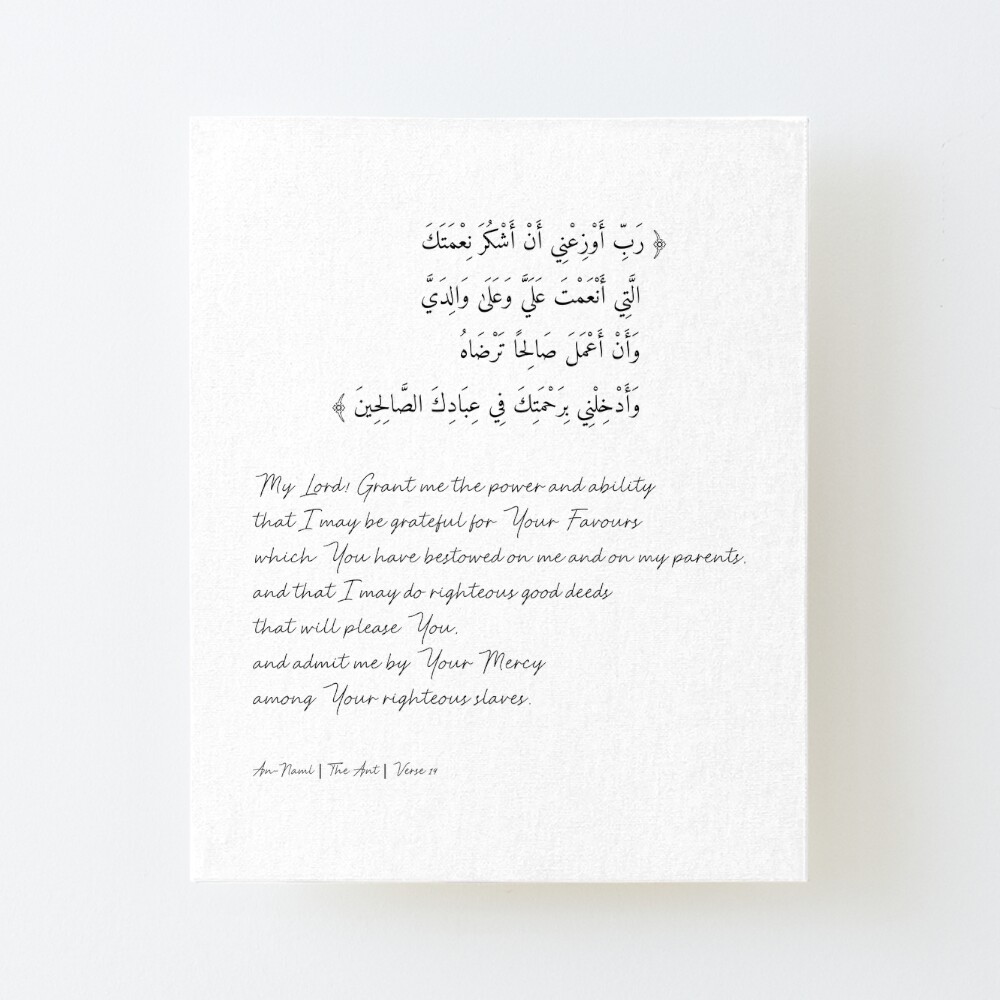 ﴿ رَبِّ أَوْزِعْنِي أَنْ أَشْكُرَ نِعْمَتَكَ
الَّتِي أَنْعَمْتَ عَلَيَّ وَعَلَىٰ وَالِدَيَّ
وَأَنْ أَعْمَلَ صَالِحًا تَرْضَاهُ
وَأَدْخِلْنِي بِرَحْمَتِكَ فِي عِبَادِكَ الصَّالِحِينَ ﴾
My Lord! Grant me the power and ability
that I may be grateful for Your Favours
which You have bestowed on me and on my parents,
and that I may do righteous good deeds
that will please You,
and admit me by Your Mercy
among Your righteous slaves.
An-Naml | The Ant | Verse 19